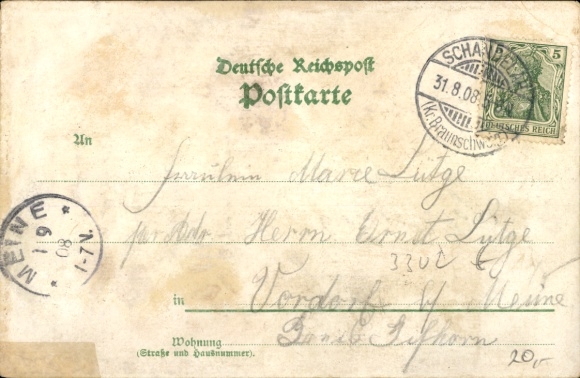 Deutsche Reichspost
Postkarte
SCHANDELAH
31.8.08
(Kr. Braunschweig)
5
DEUTSCHES REICH
An
Fräulein Marie Lütge
per Adr. Herrn Ernst Lütge
MEINE
1 9
08
1-7 V.
3302
in
Vordorf b/ Meine
Wohnung
(Straße und Hausnummer).
Gifhorn
20,-